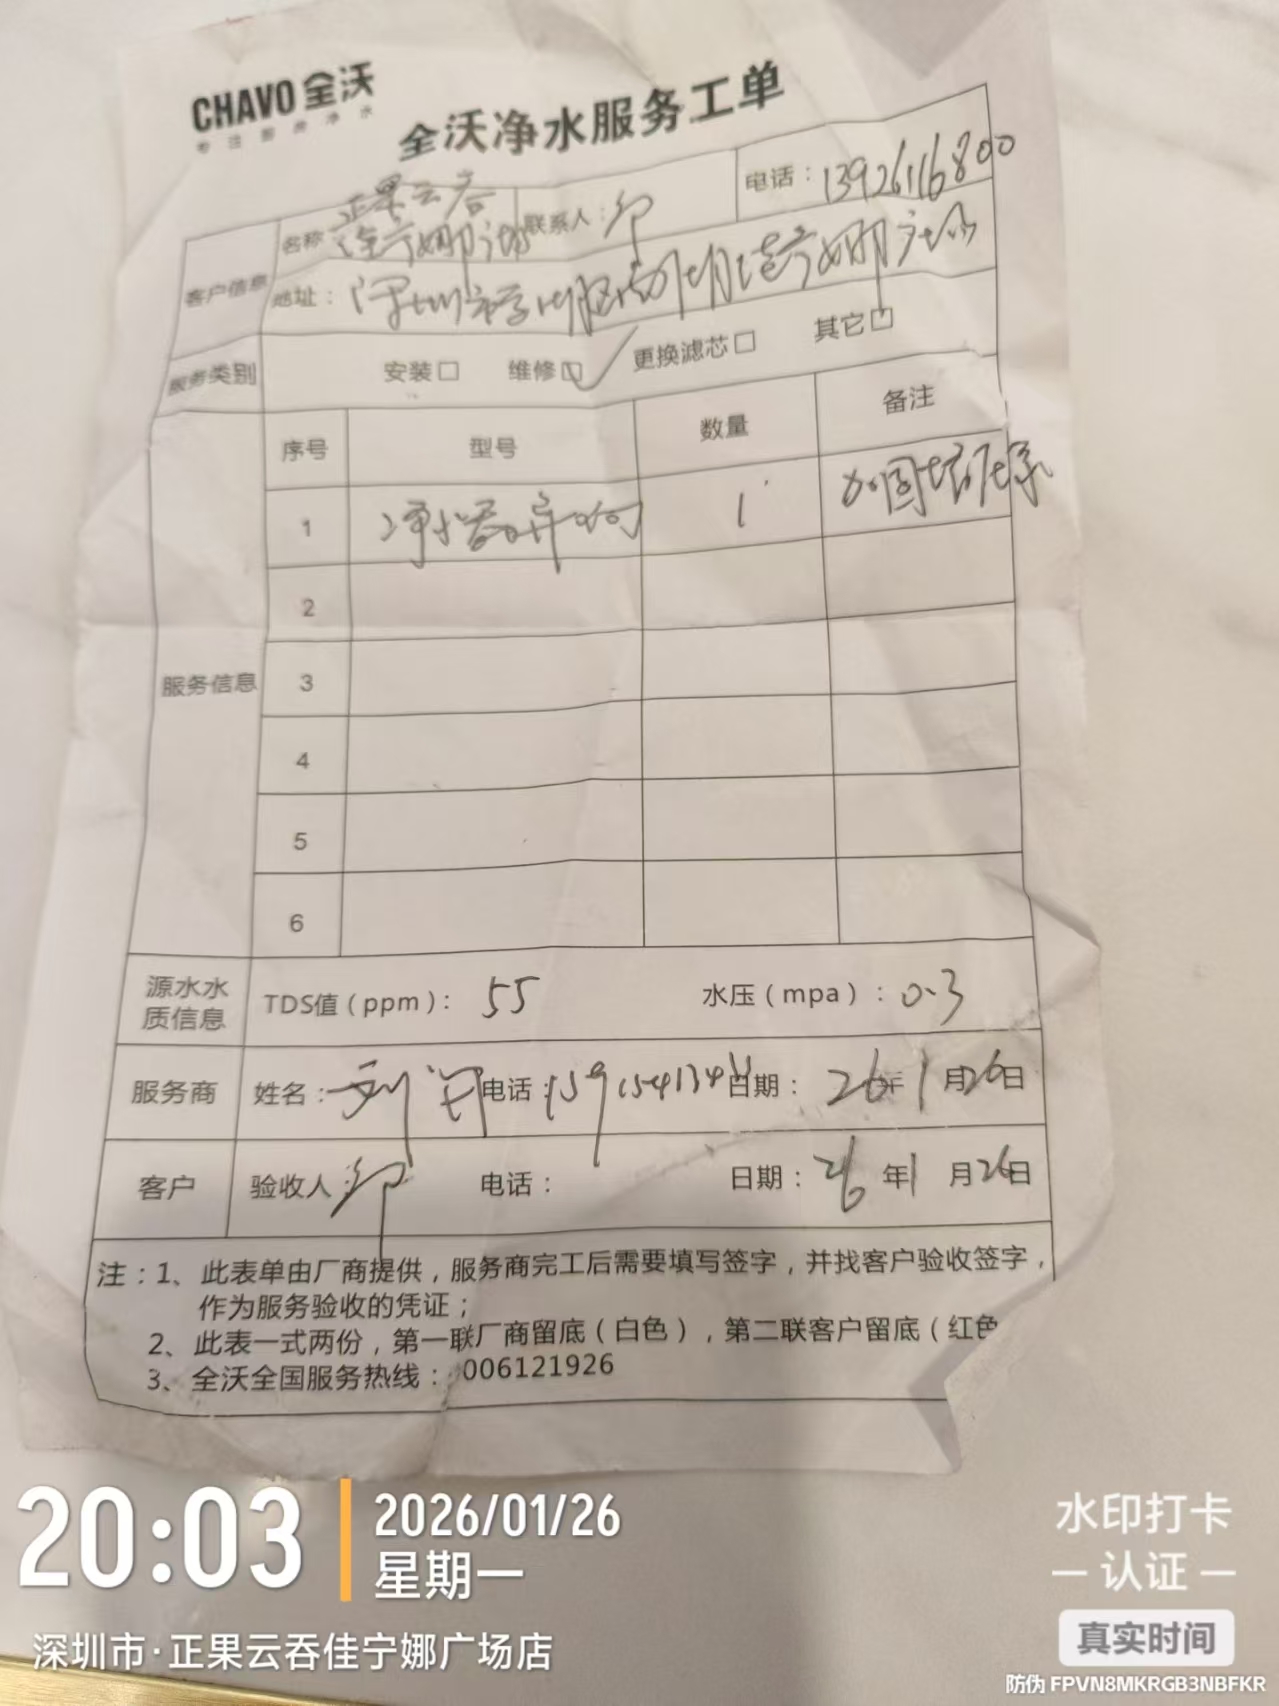 CHAVO 全沃
专注厨房净水
全沃净水服务工单
客户信息 名称 正果云吞 佳宁娜广场 联系人：邹 电话：13926116800
地址：深圳市 佳宁娜广场
服务类别 安装□ 维修☑ 更换滤芯□ 其它□
服务信息 序号 型号 数量 备注
1 净水器异响 1 加固增压泵
2
3
4
5
6
源水水质信息 TDS值（ppm）：55 水压（mpa）：0.3
服务商 姓名：刘 电话：日期：26年1月26日
客户 验收人：邹 电话： 日期：26年1月26日
注：1、此表单由厂商提供，服务商完工后需要填写签字，并找客户验收签字，
作为服务验收的凭证；
2、此表一式两份，第一联厂商留底（白色），第二联客户留底（红色
3、全沃全国服务热线：006121926
20:03
2026/01/26
星期一
深圳市·正果云吞佳宁娜广场店
水印打卡
认证
真实时间
防伪 FPVN8MKRGB3NBFKR